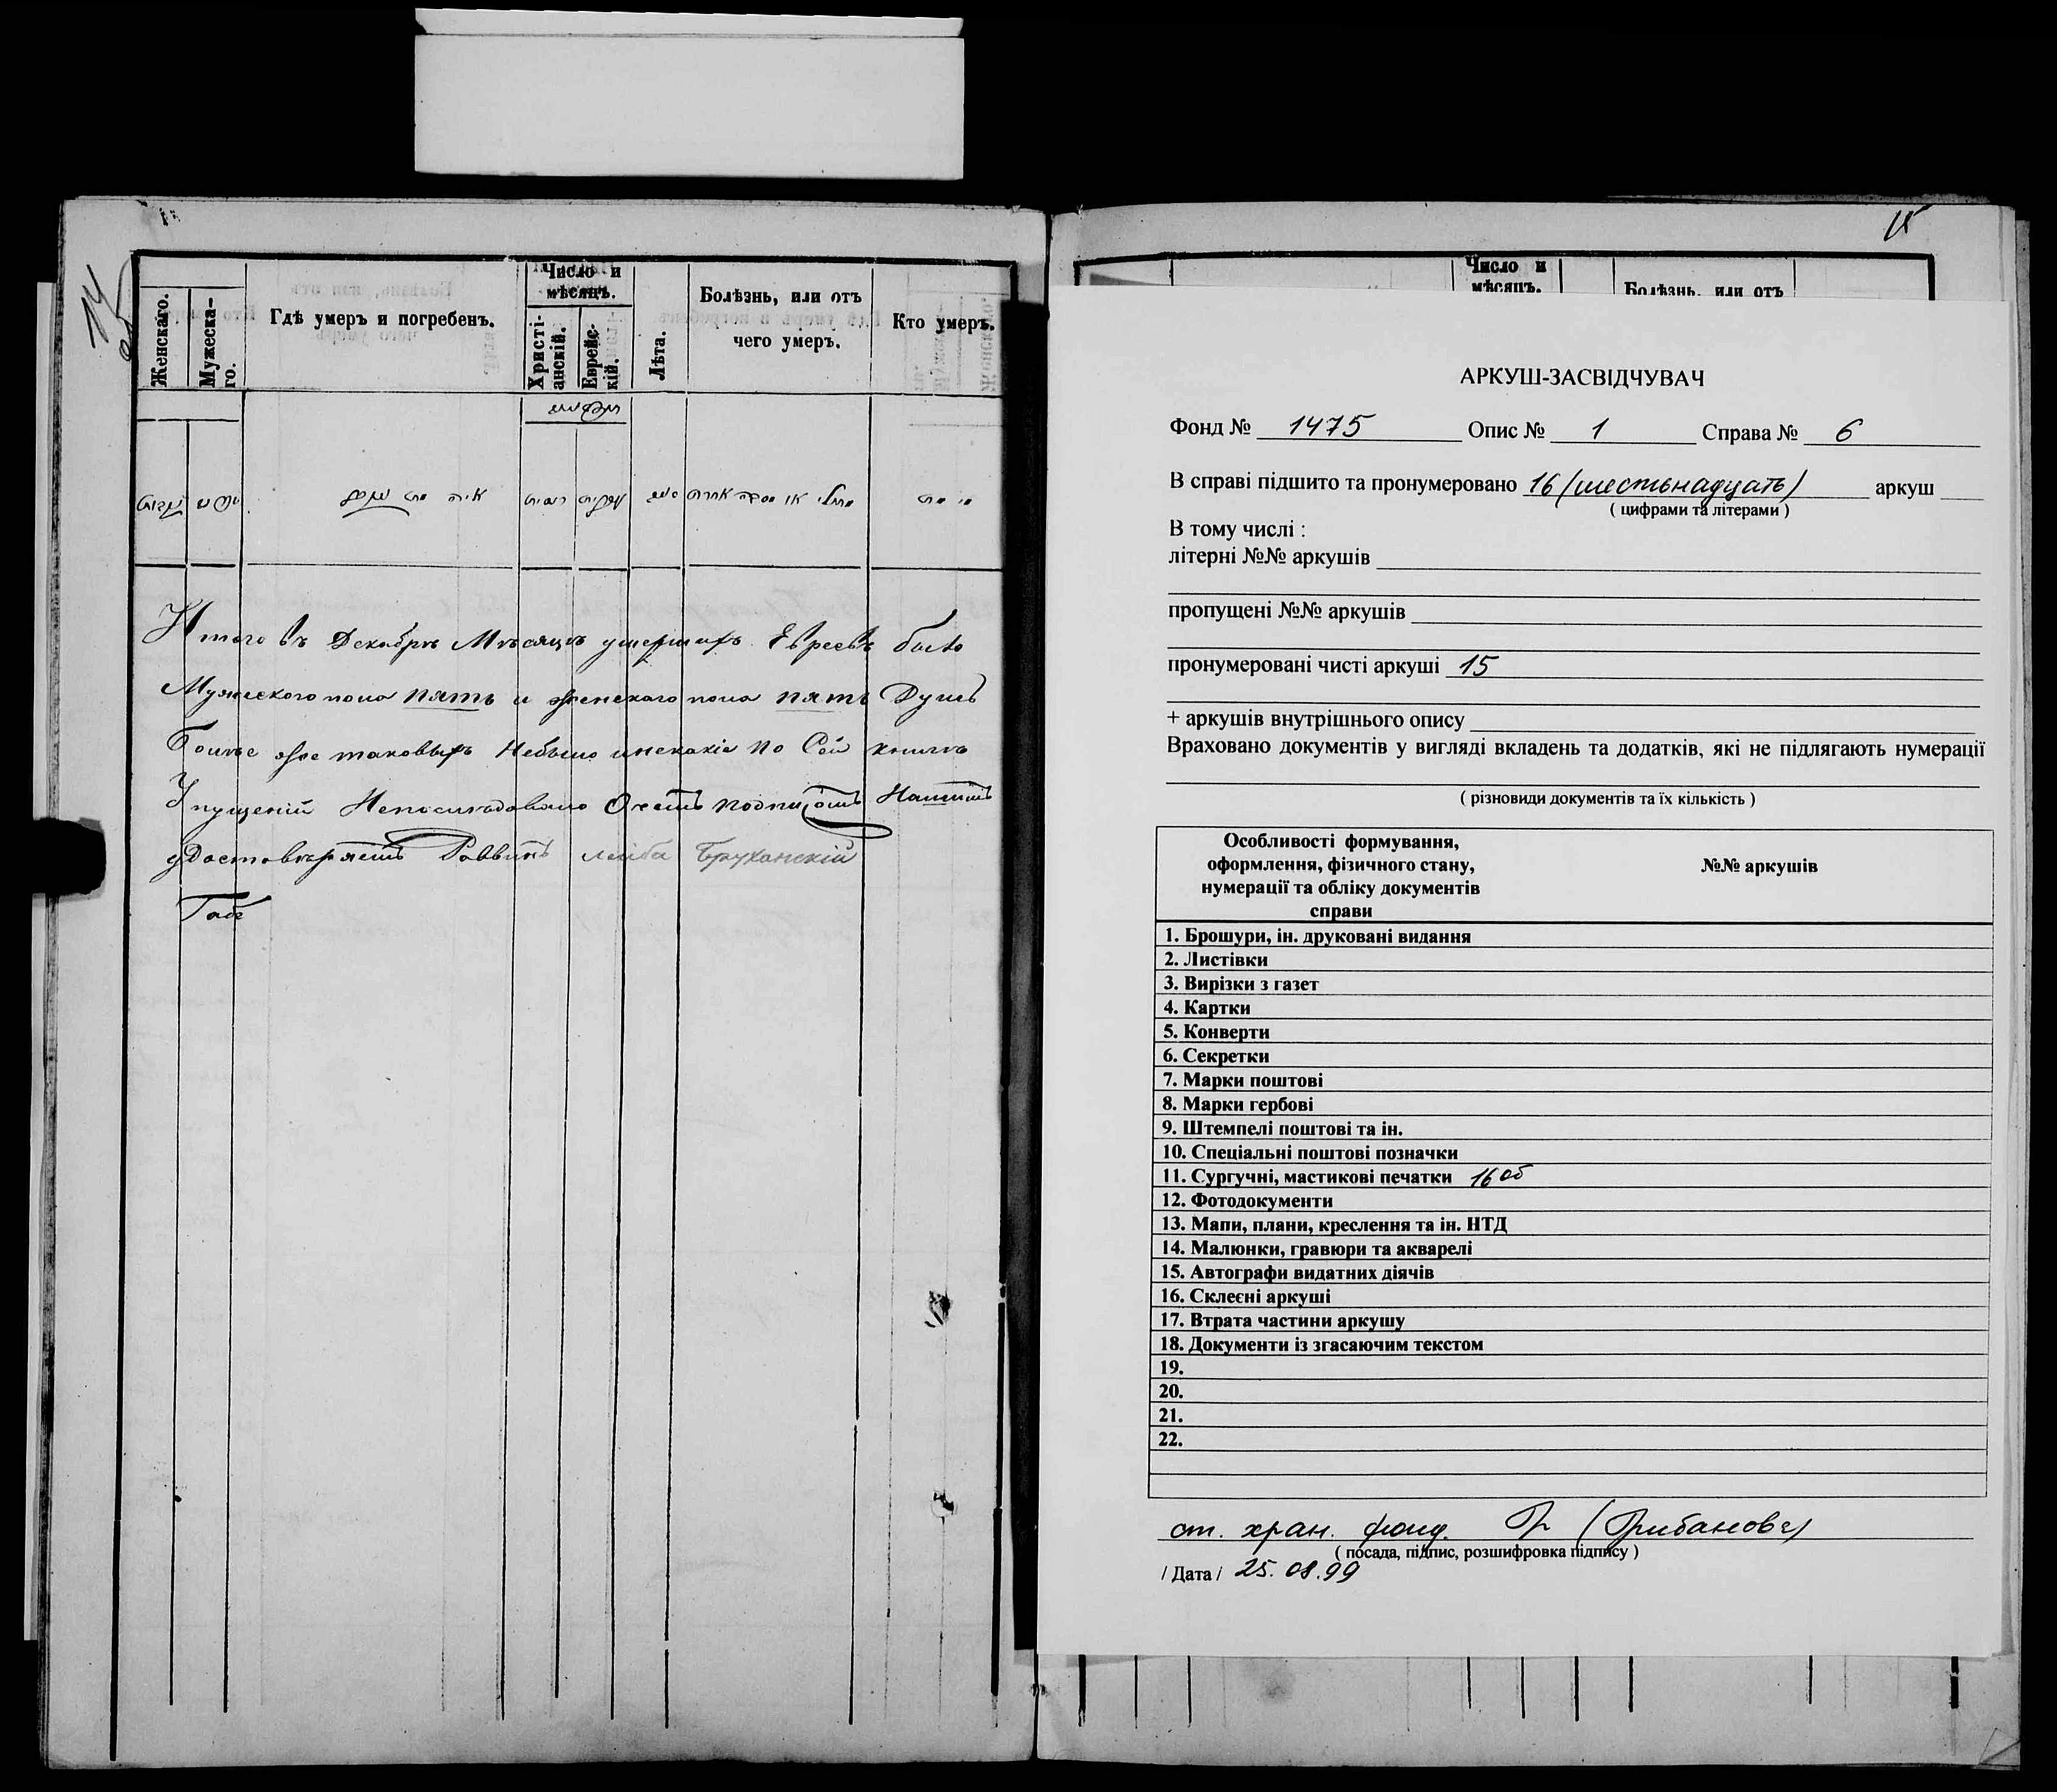 14
об
Число и
мѣсяцъ.
Женскаго.
Мужеска-
го.
Гдѣ умеръ и погребенъ.
Христі-
анскій.
Еврейс-
кій.
Лѣта.
Болѣзнь, или отъ
чего умеръ.
Кто умеръ.
Итого въ Декабрѣ Мѣсяцѣ умершихъ Евреевъ было
Мужеского пола пять и женскаго пола пять Душъ
Болѣе же таковыхъ Небыло по Сей книгѣ
Упущеній Непослѣдовало
удостовѣряетъ Раввинъ Лейба Бруханскій
Число и
мѣсяцъ.
Болѣзнь, или отъ
АРКУШ-ЗАСВІДЧУВАЧ
Фонд № 1475 Опис № 1 Справа № 6
В справі підшито та пронумеровано 16 (шестьнадцать) аркуш
( цифрами та літерами )
В тому числі :
літерні №№ аркушів
пропущені №№ аркушів
пронумеровані чисті аркуші 15
+ аркушів внутрішнього опису
Враховано документів у вигляді вкладень та додатків, які не підлягають нумерації
( різновиди документів та їх кількість )
Особливості формування,
оформлення, фізичного стану,
нумерації та обліку документів
справи
№№ аркушів
1. Брошури, ін. друковані видання
2. Листівки
3. Вирізки з газет
4. Картки
5. Конверти
6. Секретки
7. Марки поштові
8. Марки гербові
9. Штемпелі поштові та ін.
10. Спеціальні поштові позначки
11. Сургучні, мастикові печатки 16 об
12. Фотодокументи
13. Мапи, плани, креслення та ін. НТД
14. Малюнки, гравюри та акварелі
15. Автографи видатних діячів
16. Склеєні аркуші
17. Втрата частини аркушу
18. Документи із згасаючим текстом
19.
20.
21.
22.
ст. хран. фонд. (Грибанова)
( посада, підпис, розшифровка підпису )
/ Дата / 25.08.99